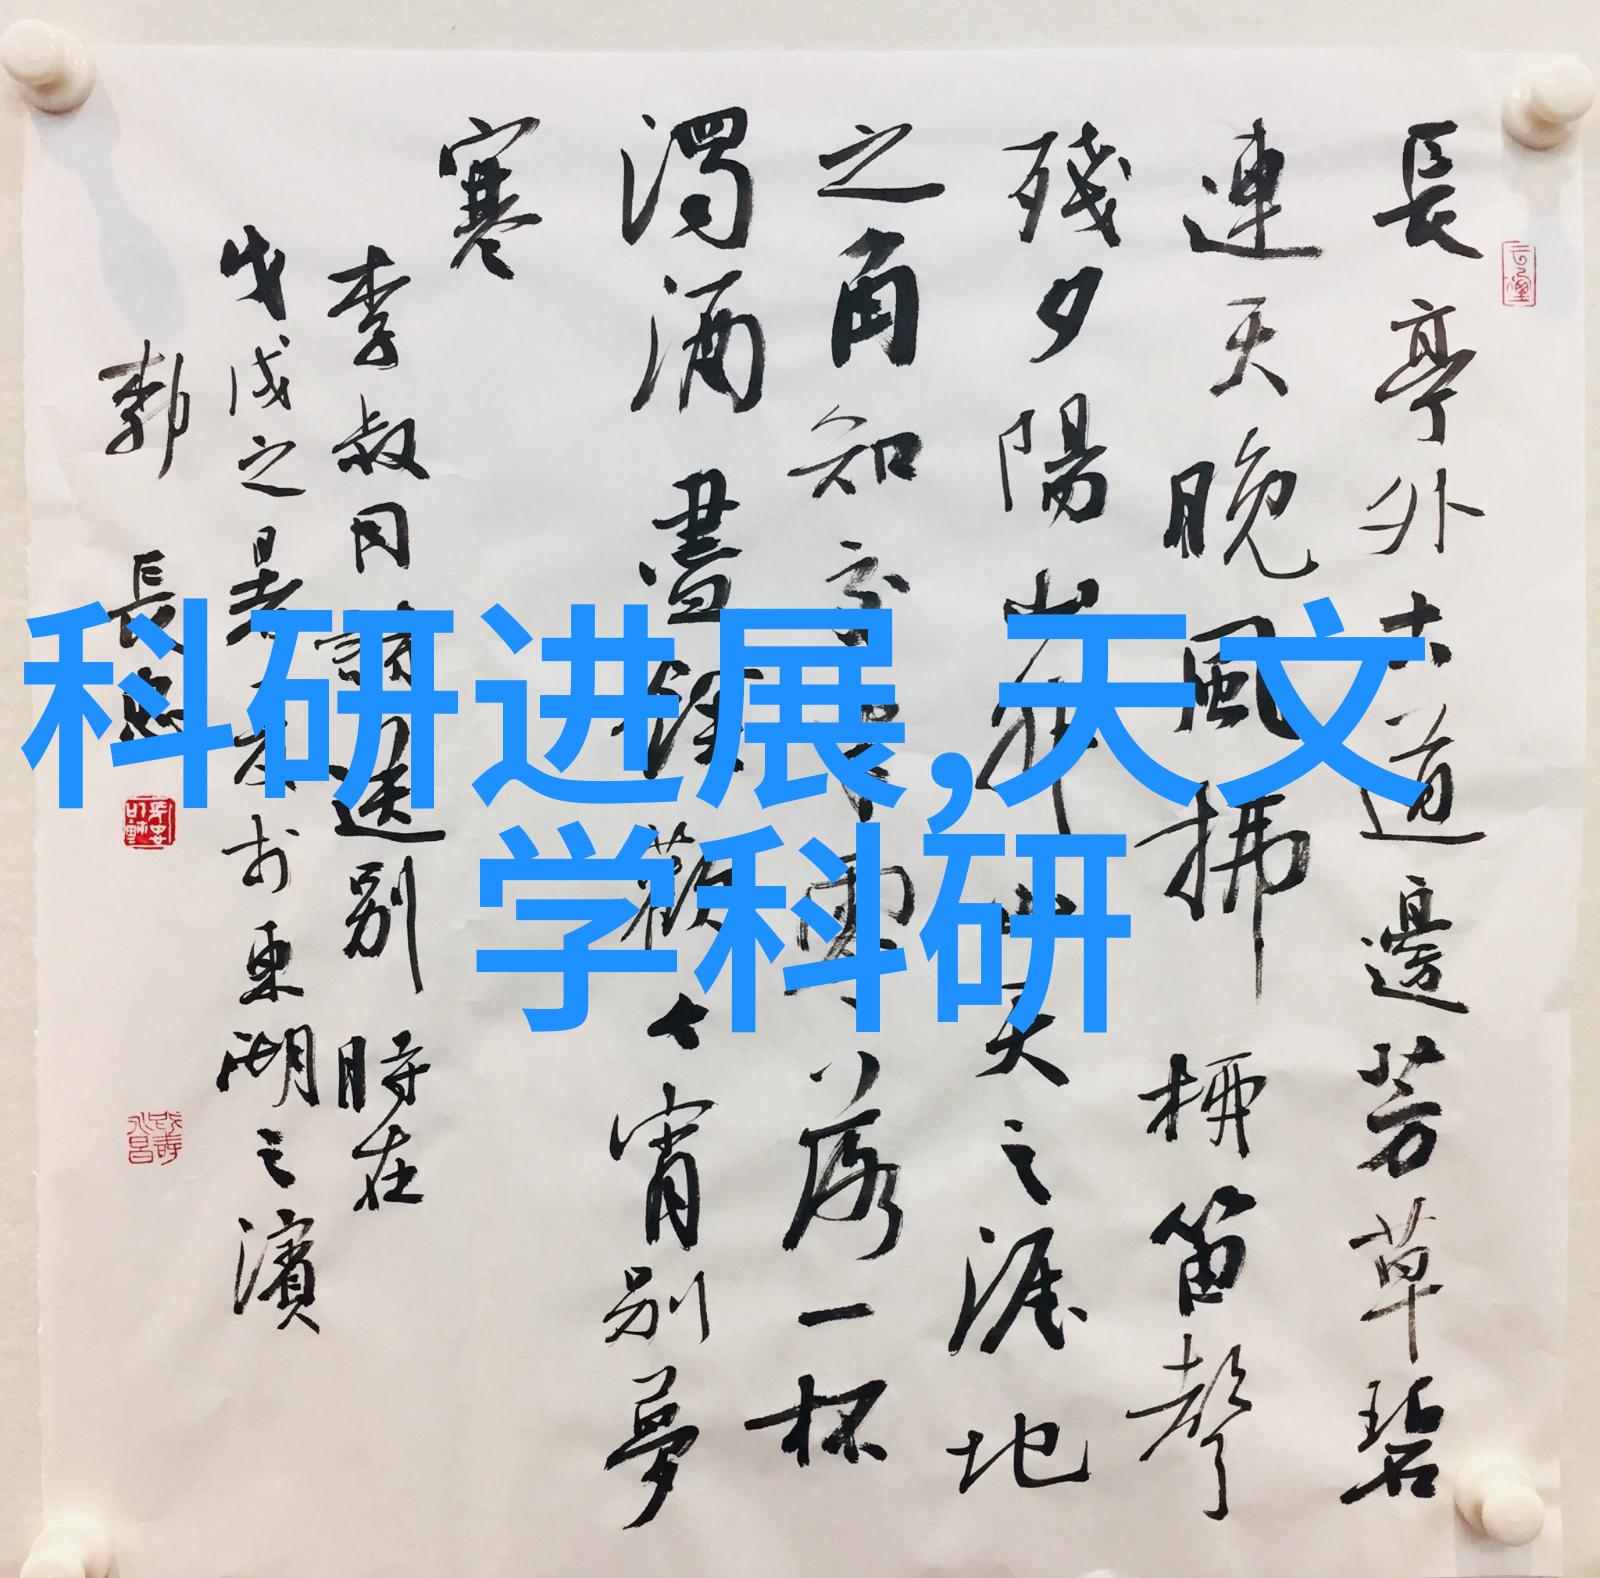 長亭外古道邊芳草碧
連天晚風拂柳笛聲
殘夕陽山外山天之涯地
之角知交半零落一杯
濁酒盡餘歡今宵別夢
寒
李叔同詩送別 時在
戊戌之
於東湖之濱
長
科研进展,天文
学科研